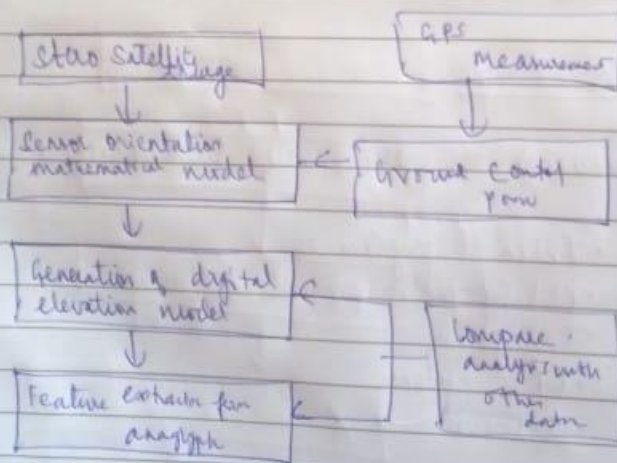 Stereo Satellite
Image
GPS
measurement
Sensor orientation
mathematical model
Ground Control
point
Generation of digital
elevation model
Compare
analysis with
other
data
Feature extraction from
anaglyph